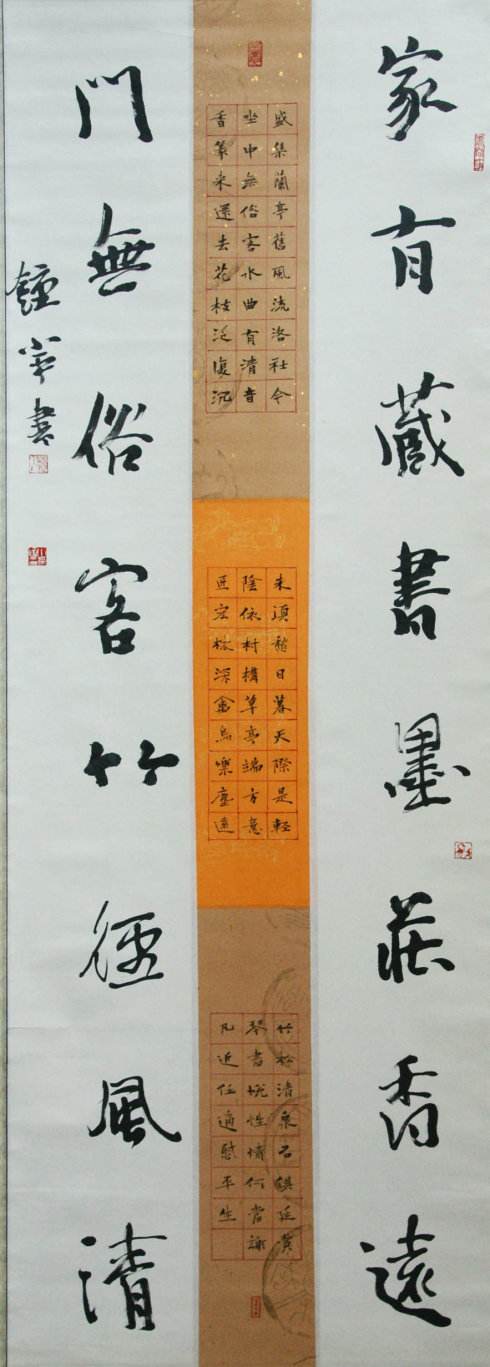 家有藏書墨莊香遠
盛集蘭亭舊風流洛社令
坐中無俗客水曲有清音
香篆來還去花枝泛復沉
未須愁日暮天際是輕
陰依村構草亭端方意
匠宏林深禽鳥樂塵遠
竹松清泉石供延賞
琴書悅性情何當謝
凡近任適慰平生
門無俗客竹徑風清
書